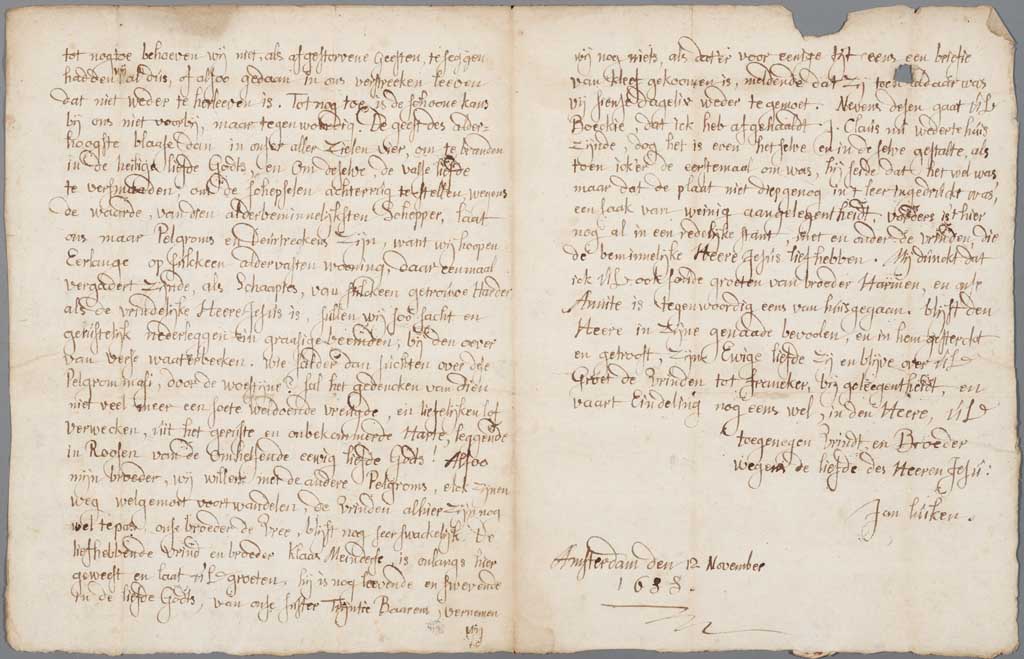 tot nogtoe behoeven wij niet, als afgestorvene Geesten, te seggen
hadden wij dus, of alsoo gedaan in ons verstreeken leeven
dat niet weder te herleeven is. Tot nog toe is de schoone kans
bij ons niet voorbij, maar tegenwoordig. De geest des alder-
hoogste blaase dan in onser aller Zielen vier, om te branden
in de heilige liefde Godts, en om deselve, de valse liefde
te versmaaden, om de schepselen achterrug te stellen, wegens
de waarde, van dien alderbeminnelijksten Schepper, laat
ons maar Pelgroms en deurtreckers zijn, want wij hoopen
Eerlange op sulckeen aldervasten wooning, daar eenmaal
vergadert zijnde, als Schaapies, van sulckeen getrouwe Harder
als de vrindelijke Heere Jesus is, sullen wij soo sacht en
gerustelijk nederleggen in graasige beemden, bij den oever
van verse waaterbeeken. wie salder dan suchten over die
Pelgrommasi, door de woestijne? sal het gedencken van dien
niet veel meer een soete weldoende vreugde, en liefelijken lof
verwecken, uit het geruste en onbekommerde Harte, leggende
in Roosen van de omhelsende eewig liefde Godts! Alsoo
mijn broeder, wij willen met de andere Pelgroms, elck zijnen
weg welgemoet voortwandelen, de vrinden alhier zijn nog
wel te pas, onse broeder de Vree, blijft nog seer swackelijk. De
liefhebbende vrind en broeder Klaas Meinderse, is onlangs hier
geweest en laat ul groeten, hij is nog leevende en swevende
in de liefde Godts, van onse suster Trijntie Baarens, vernemen
wij
wij nog niets, als dat er voor eenige tijt eens een briefie
van kleef gekoomen is, meldende dat zij toen aldaar was
wij sien se dageliv weder te gemoet. Nevens desen gaat ul
Boeckie, dat ick heb afgehaaldt. J. Claus nu weder te huis
zijnde, dog het is even het selve en in de selve gestalte, als
toen ick er de eerstemaal om was, hij seide dat het vel was
maar dat de plaat niet diep genog in t leer ingedruckt was,
een saak van weinig aangelegentheidt. vorders ist hier
nog al in een redelijke stant, met en onder de vrinden, die
de beminnelijke Heere Jesus lief hebben. Mij dunckt dat
ick ul ook soude groeten van broeder Harmen, en onse
Annite is tegenwoordig eens van huis gegaan. blijft den
Heere in zijne genaade bevoolen, en in hem gesterckt
en getroost, zijne Ewige liefde zij en blijve over ul
Groet de vrinden tot franeker, bij geleegentheidt, en
vaart Eindeling nog eens wel, in den Heere, ul
toegenegen vrindt en Broeder
wegens de liefde des Heeren Jesu:
Jan luiken.
Amsterdam den 12 November
1688.